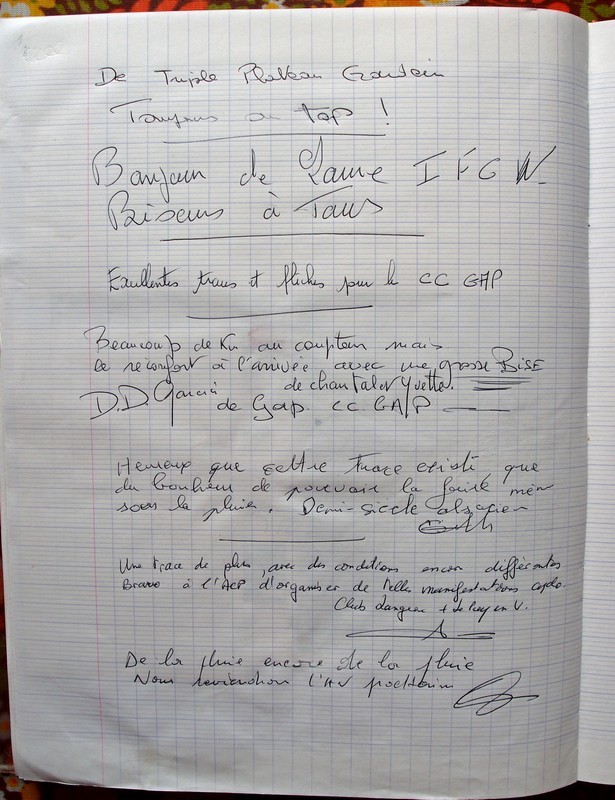 De Triple Plateau
Toujours au top !
Bonjour de Laure I F G W
Bisous à Tous
Exellentes traces et flèches pour le CC GAP
Beaucoup de Km au compteur mais
le réconfort à l'arrivée avec une grosse BISE
de chantal et Yvette.
D.D. Garcin de Gap CC GAP
Heureux que cette trace existe que
du bonheur de pouvoir la faire même
sous la pluie. Demi-siècle alsacien
Une trace de plus, avec des conditions encore différentes
Bravo à l'ACP d'organiser de telles manifestations cyclo.
Club
De la pluie encore de la pluie
Nous reviendron l'AN prochain